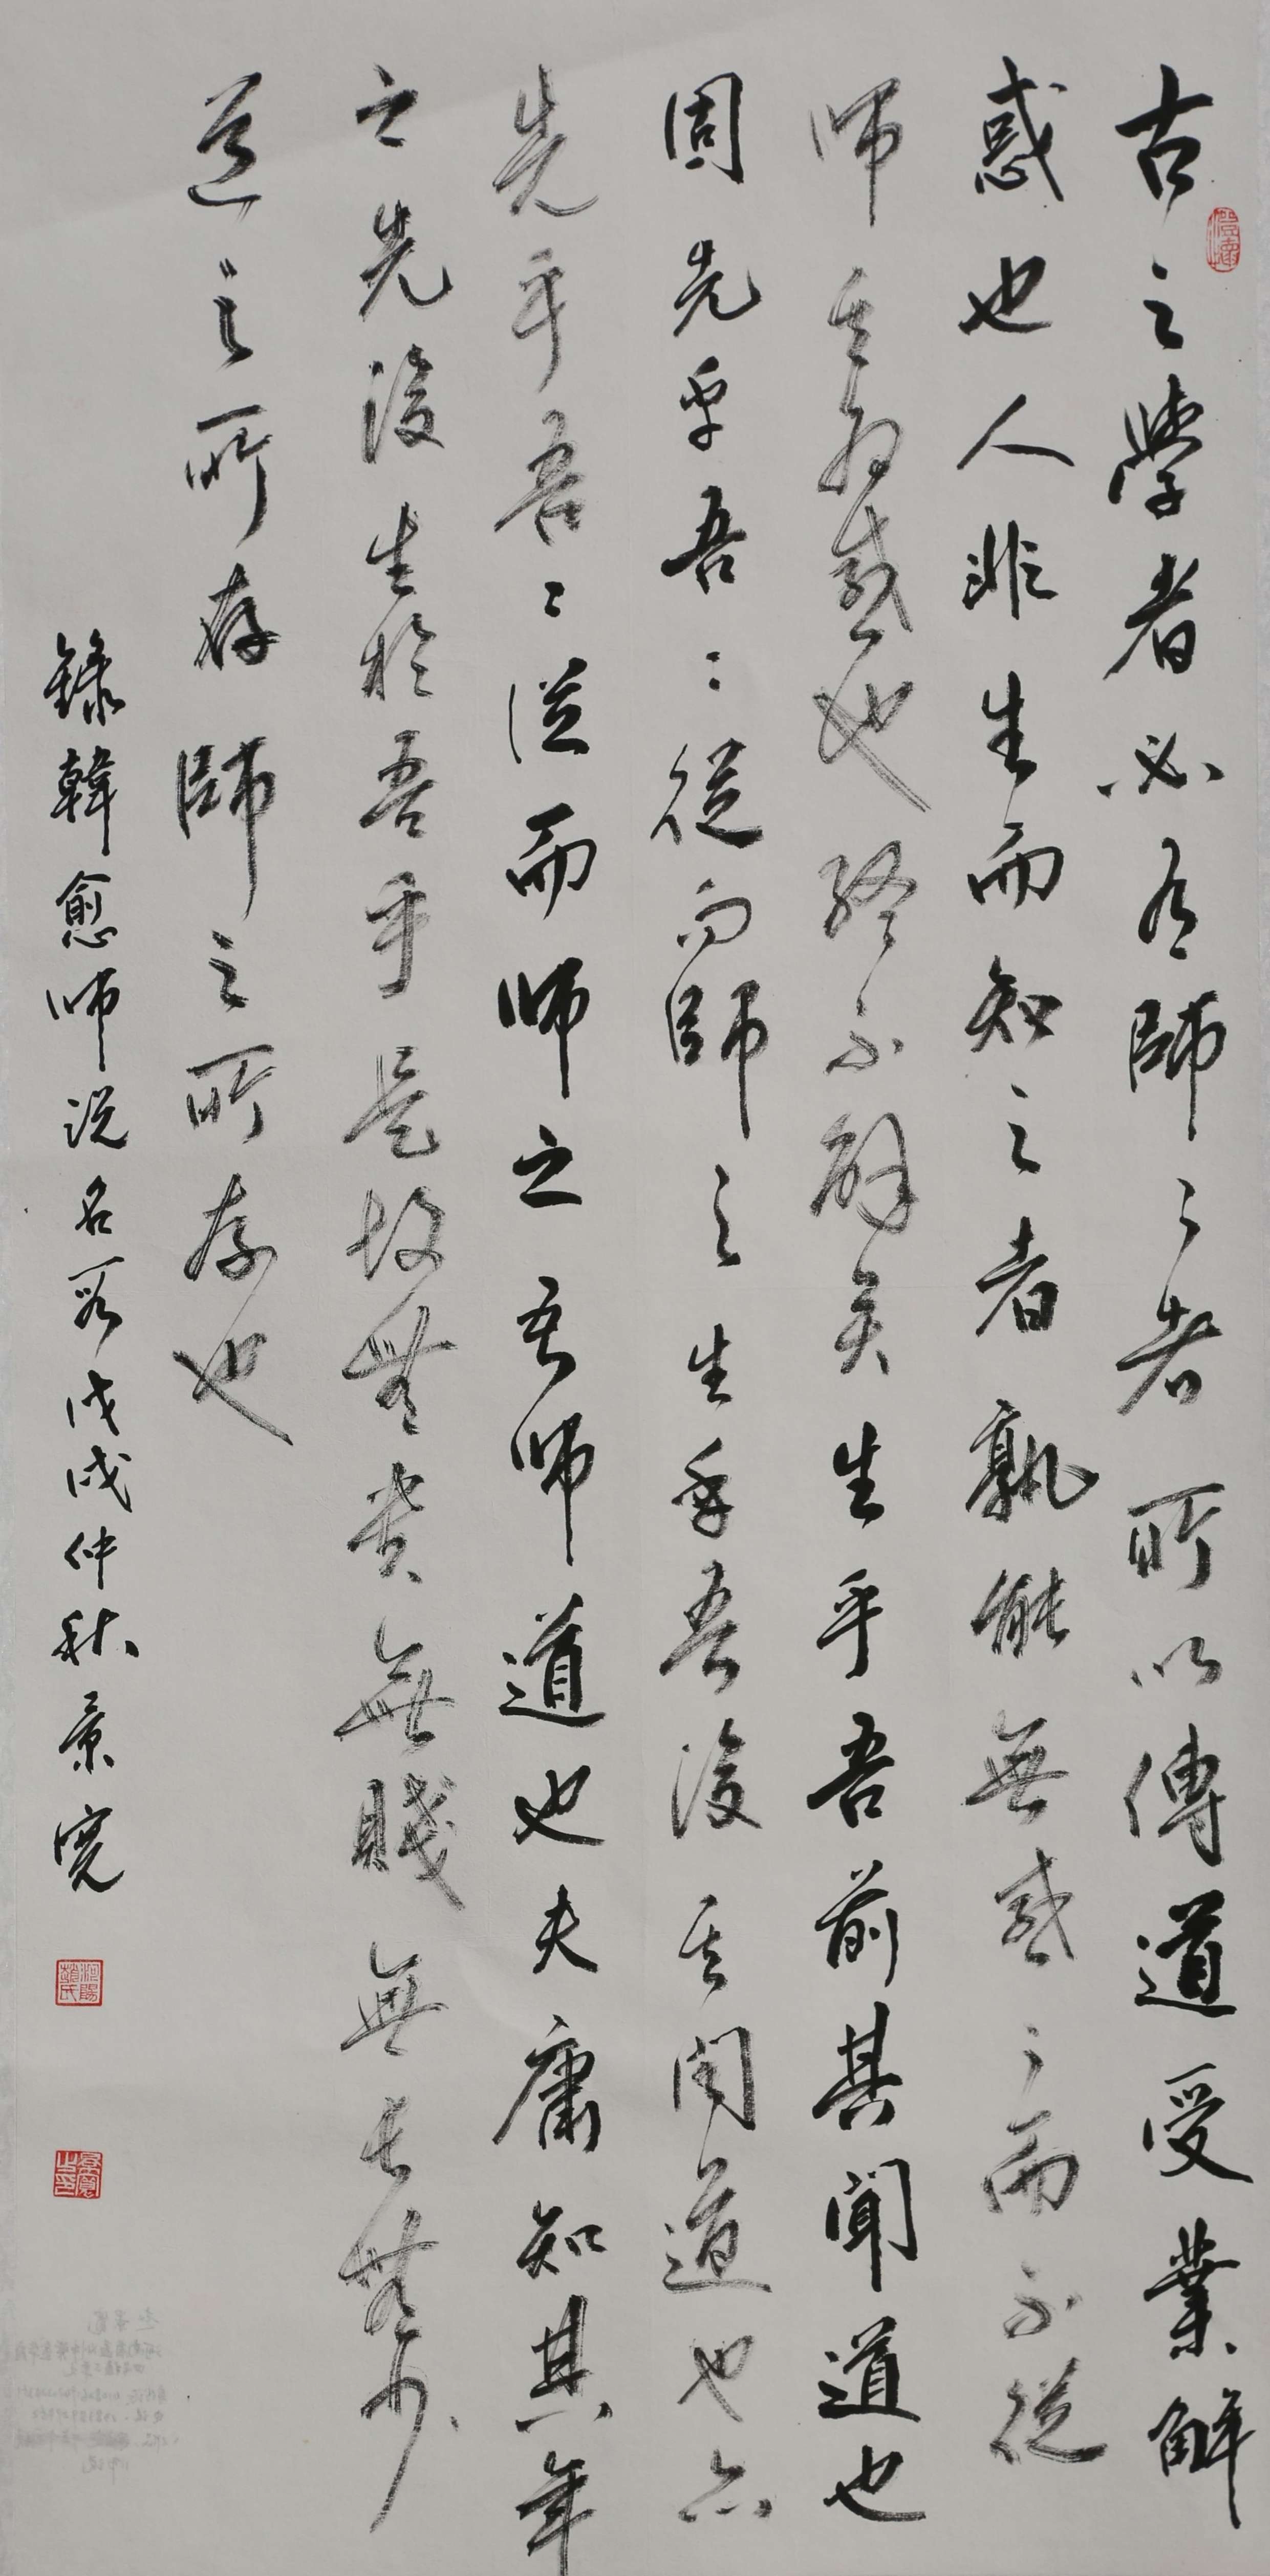 澄懷
古之學者必有師〻者所以傳道受業解
惑也人非生而知之者孰能無惑〻而不從
师其為惑也終不解矣生乎吾前其聞道也
固先乎吾〻從而師之生乎吾後其闻道也亦
先乎吾〻從而师之吾师道也夫庸知其年
之先後生於吾乎是故無貴無賤無長無少
道之所存師之所存也
錄韓愈师说名段戊戌仲秋景寬
河陽趙氏
景寬之印